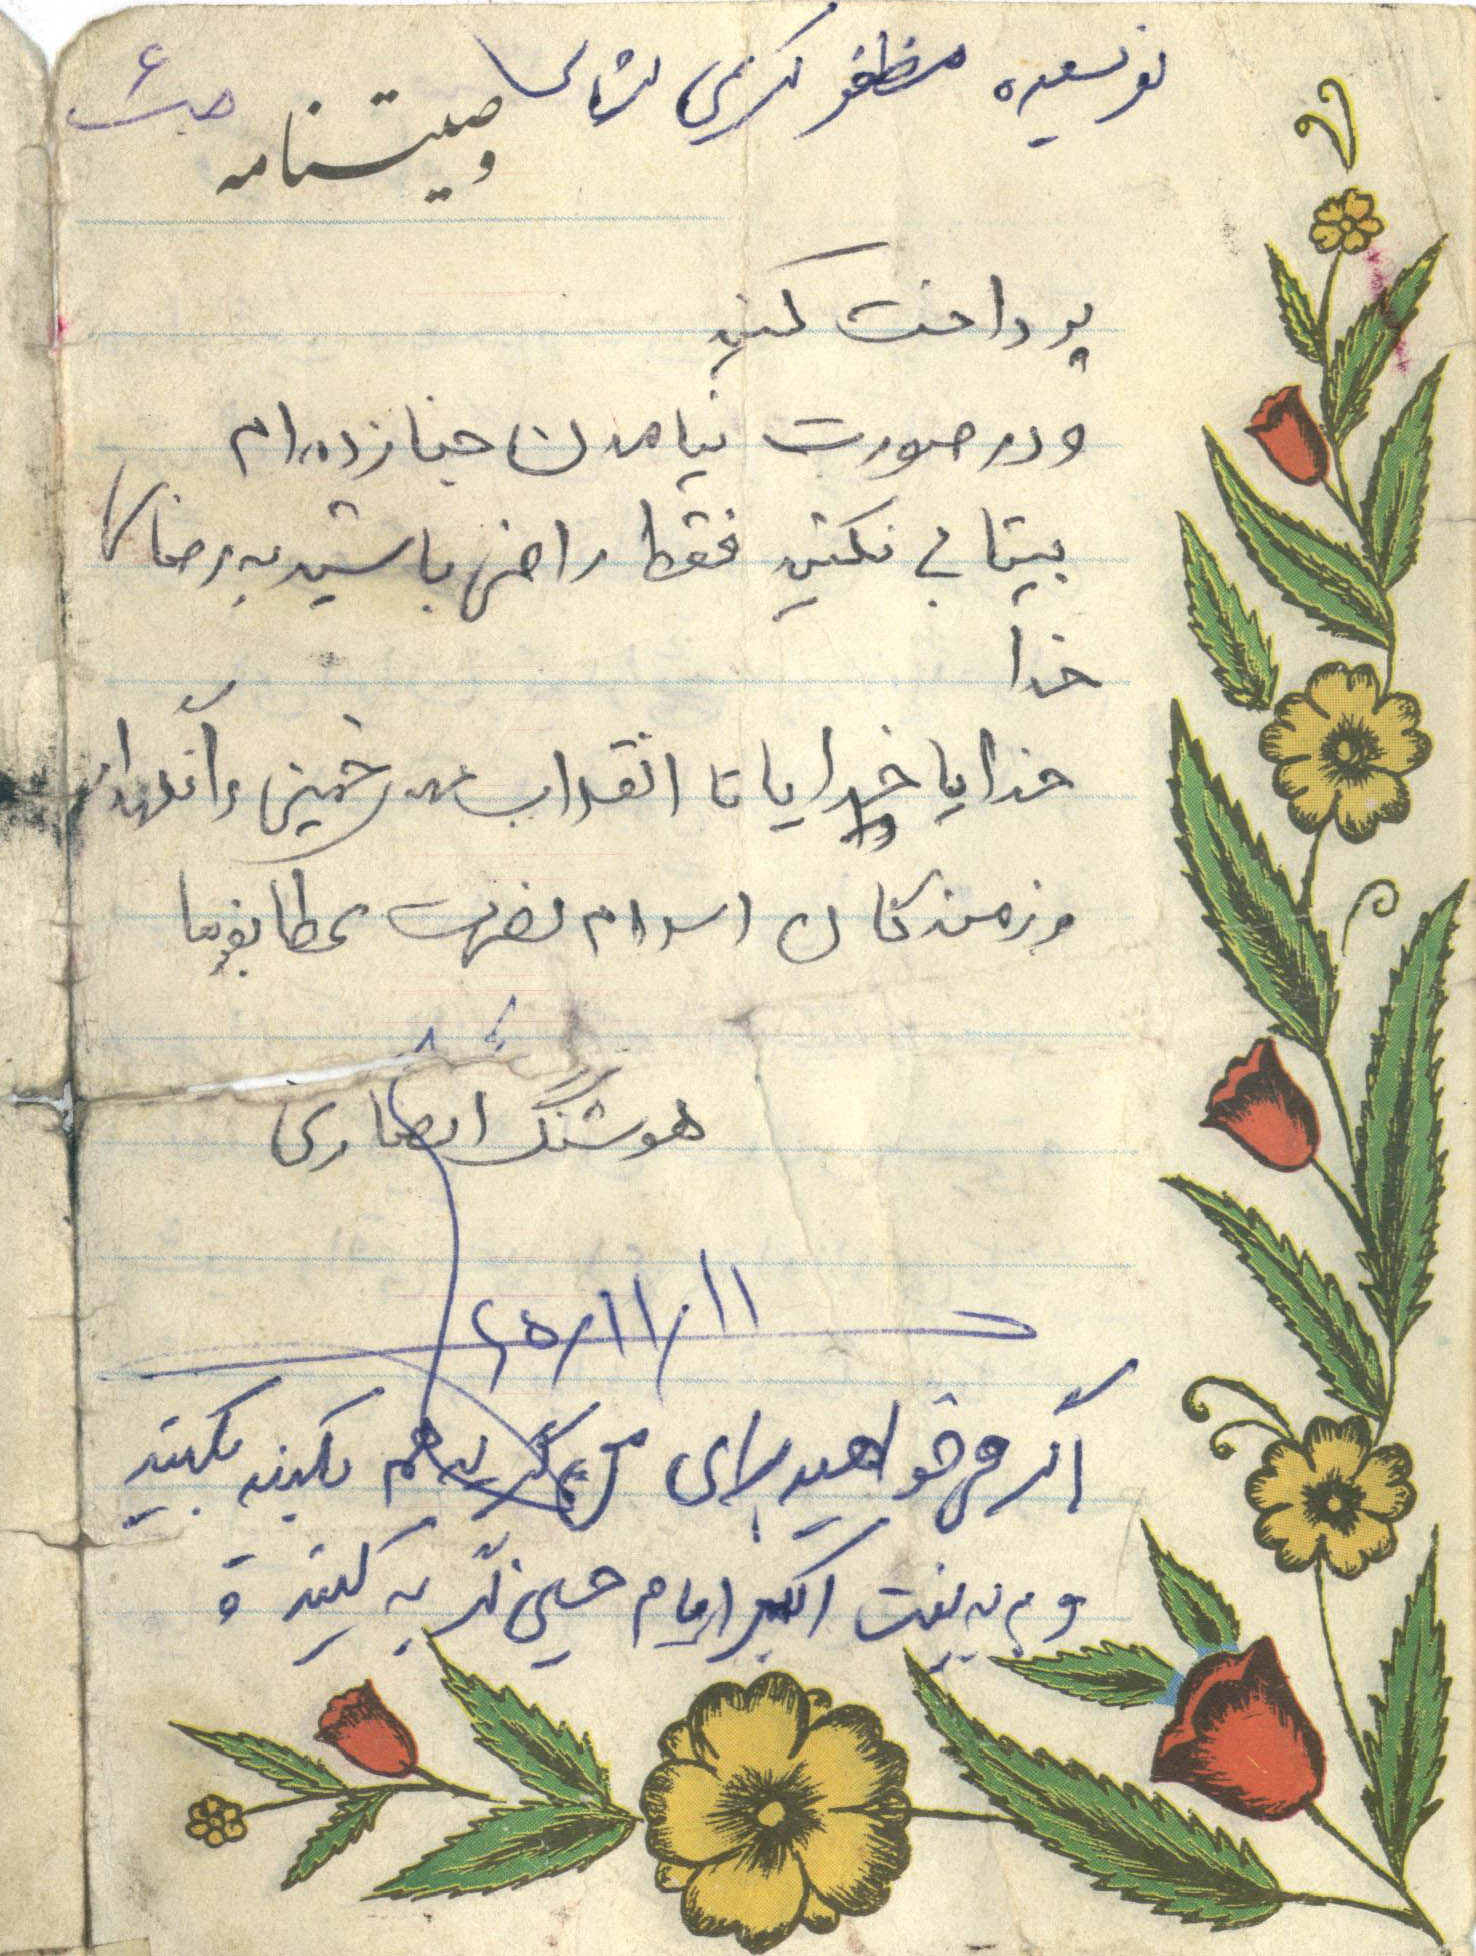 نویسنده مظفر کریمی
ص ۶
وصیتنامه
پرداخت کنید
و در صورت نیامدن جنازه ام
بیتابی نکنید فقط راضی باشید به رضای
خدا
خدایا خدایا تا انقلاب مهدی خمینی را نگهدار
رزمندگان اسلام نصرت عطا بفرما
هوشنگ انصاری
۶۵/۱۱/۱۱
اگر می خواهید برای من گریه هم بکنید بکنید
و به نیت اکبر امام حسین گریه کنید